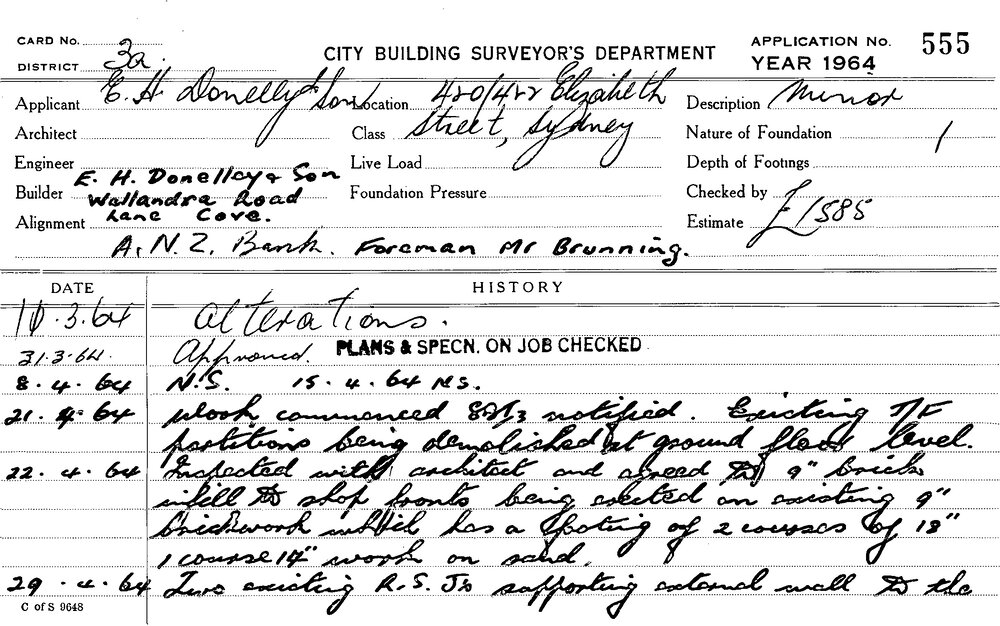 CARD No.
DISTRICT 3a.
CITY BUILDING SURVEYOR'S DEPARTMENT
APPLICATION No. 555
YEAR 1964
Applicant E. H. Donelley & Son
Location 420/422 Elizabeth
Description Minor
Architect
Class Street, Sydney
Nature of Foundation 1
Engineer
Live Load
Depth of Footings
Builder E. H. Donelley & Son
Wallandra Road
Foundation Pressure
Checked by
Alignment Lane Cove.
Estimate £1585
A.N.Z. Bank. Foreman Mr Brunning.
DATE HISTORY
10.3.64 Alterations.
31.3.64. Approved. PLANS & SPECN. ON JOB CHECKED
8.4.64 N.S. 15.4.64 N.S.
21.4.64 Work commenced notified. Existing T/F
partitions being demolished at ground floor level.
22.4.64 Inspected with architect and agreed to 9" brick
infill to shop fronts being erected on existing 9"
brickwork which has a footing of 2 courses of 18"
1 course 14" work on sand.
29.4.64 Two existing R.S.Js supporting external wall to the
C of S 9648